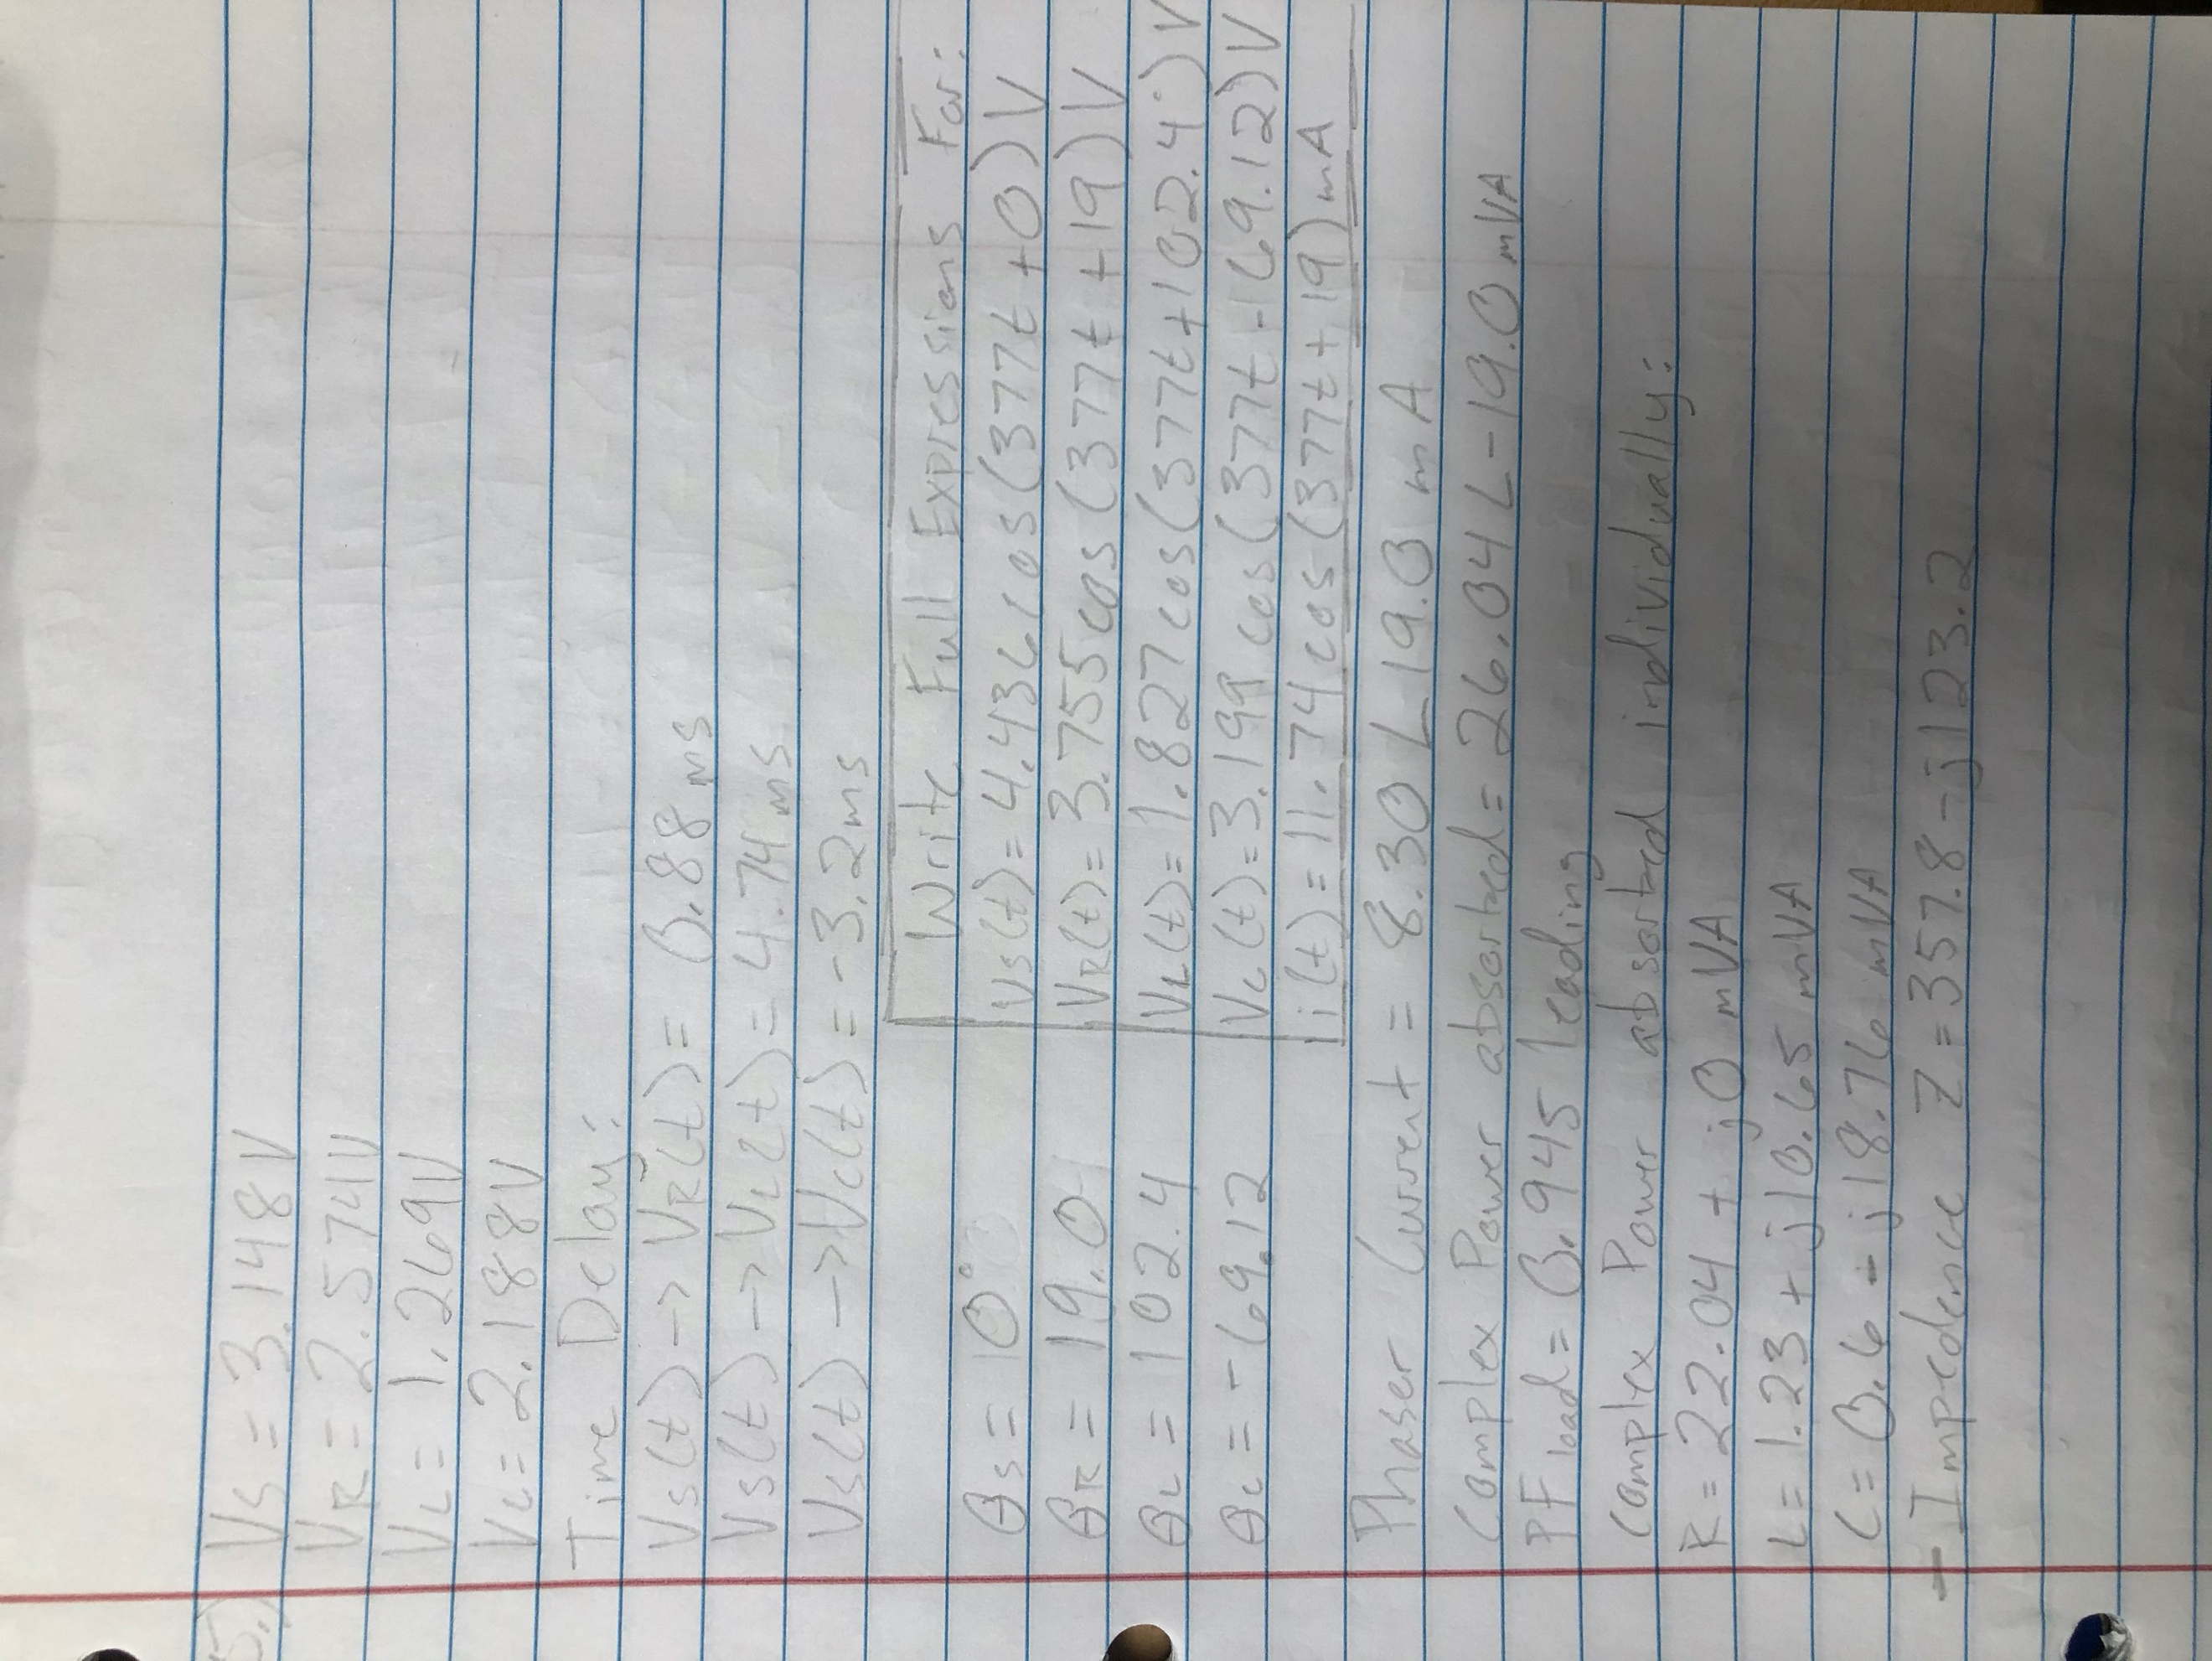 5.) VS = 3.148V
VR = 2.574V
VL = 1.269V
VC = 2.188V
Time Delay:
VS(t) -> VR(t) = 0.88ms
VS(t) -> VL(t) = 4.74ms
VS(t) -> VC(t) = -3.2ms
Write Full Expressions For:
θS = 0° VS(t) = 4.436cos(377t+0)V
θR = 19.0 VR(t) = 3.755cos(377t+19)V
θL = 102.4 VL(t) = 1.827cos(377t+102.4°)V
θC = -69.12 VC(t) = 3.199cos(377t-69.12)V
i(t) = 11.74cos(377t+19)mA
Phaser Current = 8.30∠19.0 mA
Complex Power absorbed = 26.04∠-19.0 mVA
PFload = 0.945 leading
Complex Power absorbed individually:
R = 22.04 + j0 mVA
L = 1.23 + j10.65 mVA
C = 0.6 - j18.76 mVA
- Impedence Z = 357.8 - j123.2